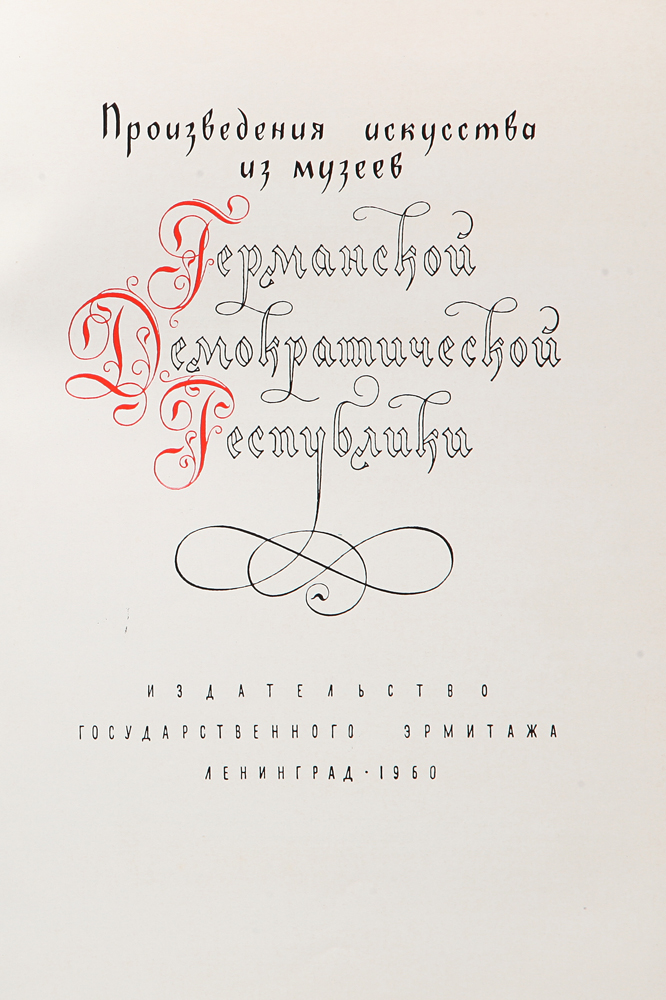 Произведения искусства
из музеев
Германской
Демократической
Республики
ИЗДАТЕЛЬСТВО
ГОСУДАРСТВЕННОГО ЭРМИТАЖА
ЛЕНИНГРАД · 1960